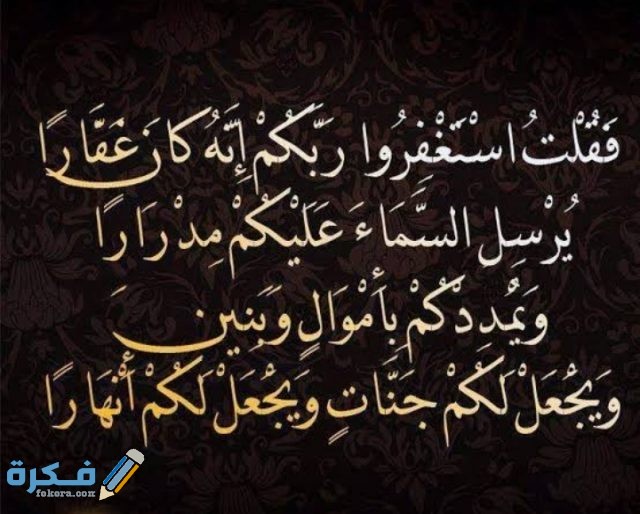 فَقُلْتُ اسْتَغْفِرُوا رَبَّكُمْ إِنَّهُ كَانَ غَفَّارًا
يُرْسِلِ السَّمَاءَ عَلَيْكُمْ مِدْرَارًا
وَيُمْدِدْكُمْ بِأَمْوَالٍ وَبَنِينَ
وَيَجْعَلْ لَكُمْ جَنَّاتٍ وَيَجْعَلْ لَكُمْ أَنْهَارًا
فكرة
fekera.com